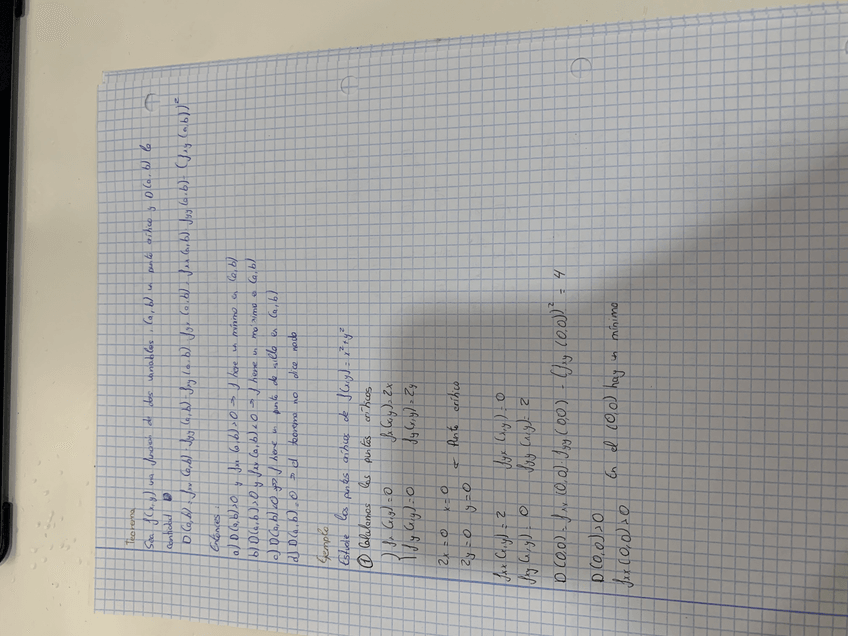 Teorema
Sea f(x,y) una función de dos variables, (a,b) un punto crítico y D(a,b) la
cantidad D
D(a,b) = fxx(a,b)·fyy(a,b)-fxy(a,b)·fyx(a,b) = fxx(a,b)·fyy(a,b)-(fxy(a,b))²
Entonces:
a) D(a,b)>0 y fxx(a,b)>0 => f tiene un mínimo en (a,b)
b) D(a,b)>0 y fxx(a,b)<0 => f tiene un máximo en (a,b)
c) D(a,b)<0 => f tiene un punto de silla en (a,b)
d) D(a,b)=0 => el teorema no dice nada
Ejemplo
Estudie los puntos críticos de f(x,y)=x²+y²
① Calculamos los puntos críticos
{ fx(x,y)=0 fx(x,y)=2x
{ fy(x,y)=0 fy(x,y)=2y
2x=0 x=0
2y=0 y=0 ← Punto crítico
fxx(x,y)=2 fyx(x,y)=0
fxy(x,y)=0 fyy(x,y)=2
D(0,0)=fxx(0,0)·fyy(0,0)-(fxy(0,0))²=4
D(0,0)>0
fxx(0,0)>0 En el (0,0) hay un mínimo